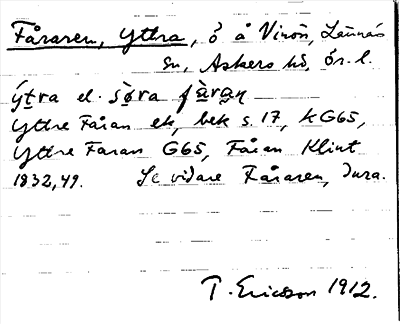 Fåraren, Yttra, ö å Vinön, Lännäs
sn, Askers hd, Ör. l.
ýtra el. sö̀ra fàraɳ
Yttre Fåran ek, bek s. 17, kG65,
Yttre Faran G65, Fåran Klint
1832, 49. Se vidare Fåraren, Jura.
T. Ericsson 1912.